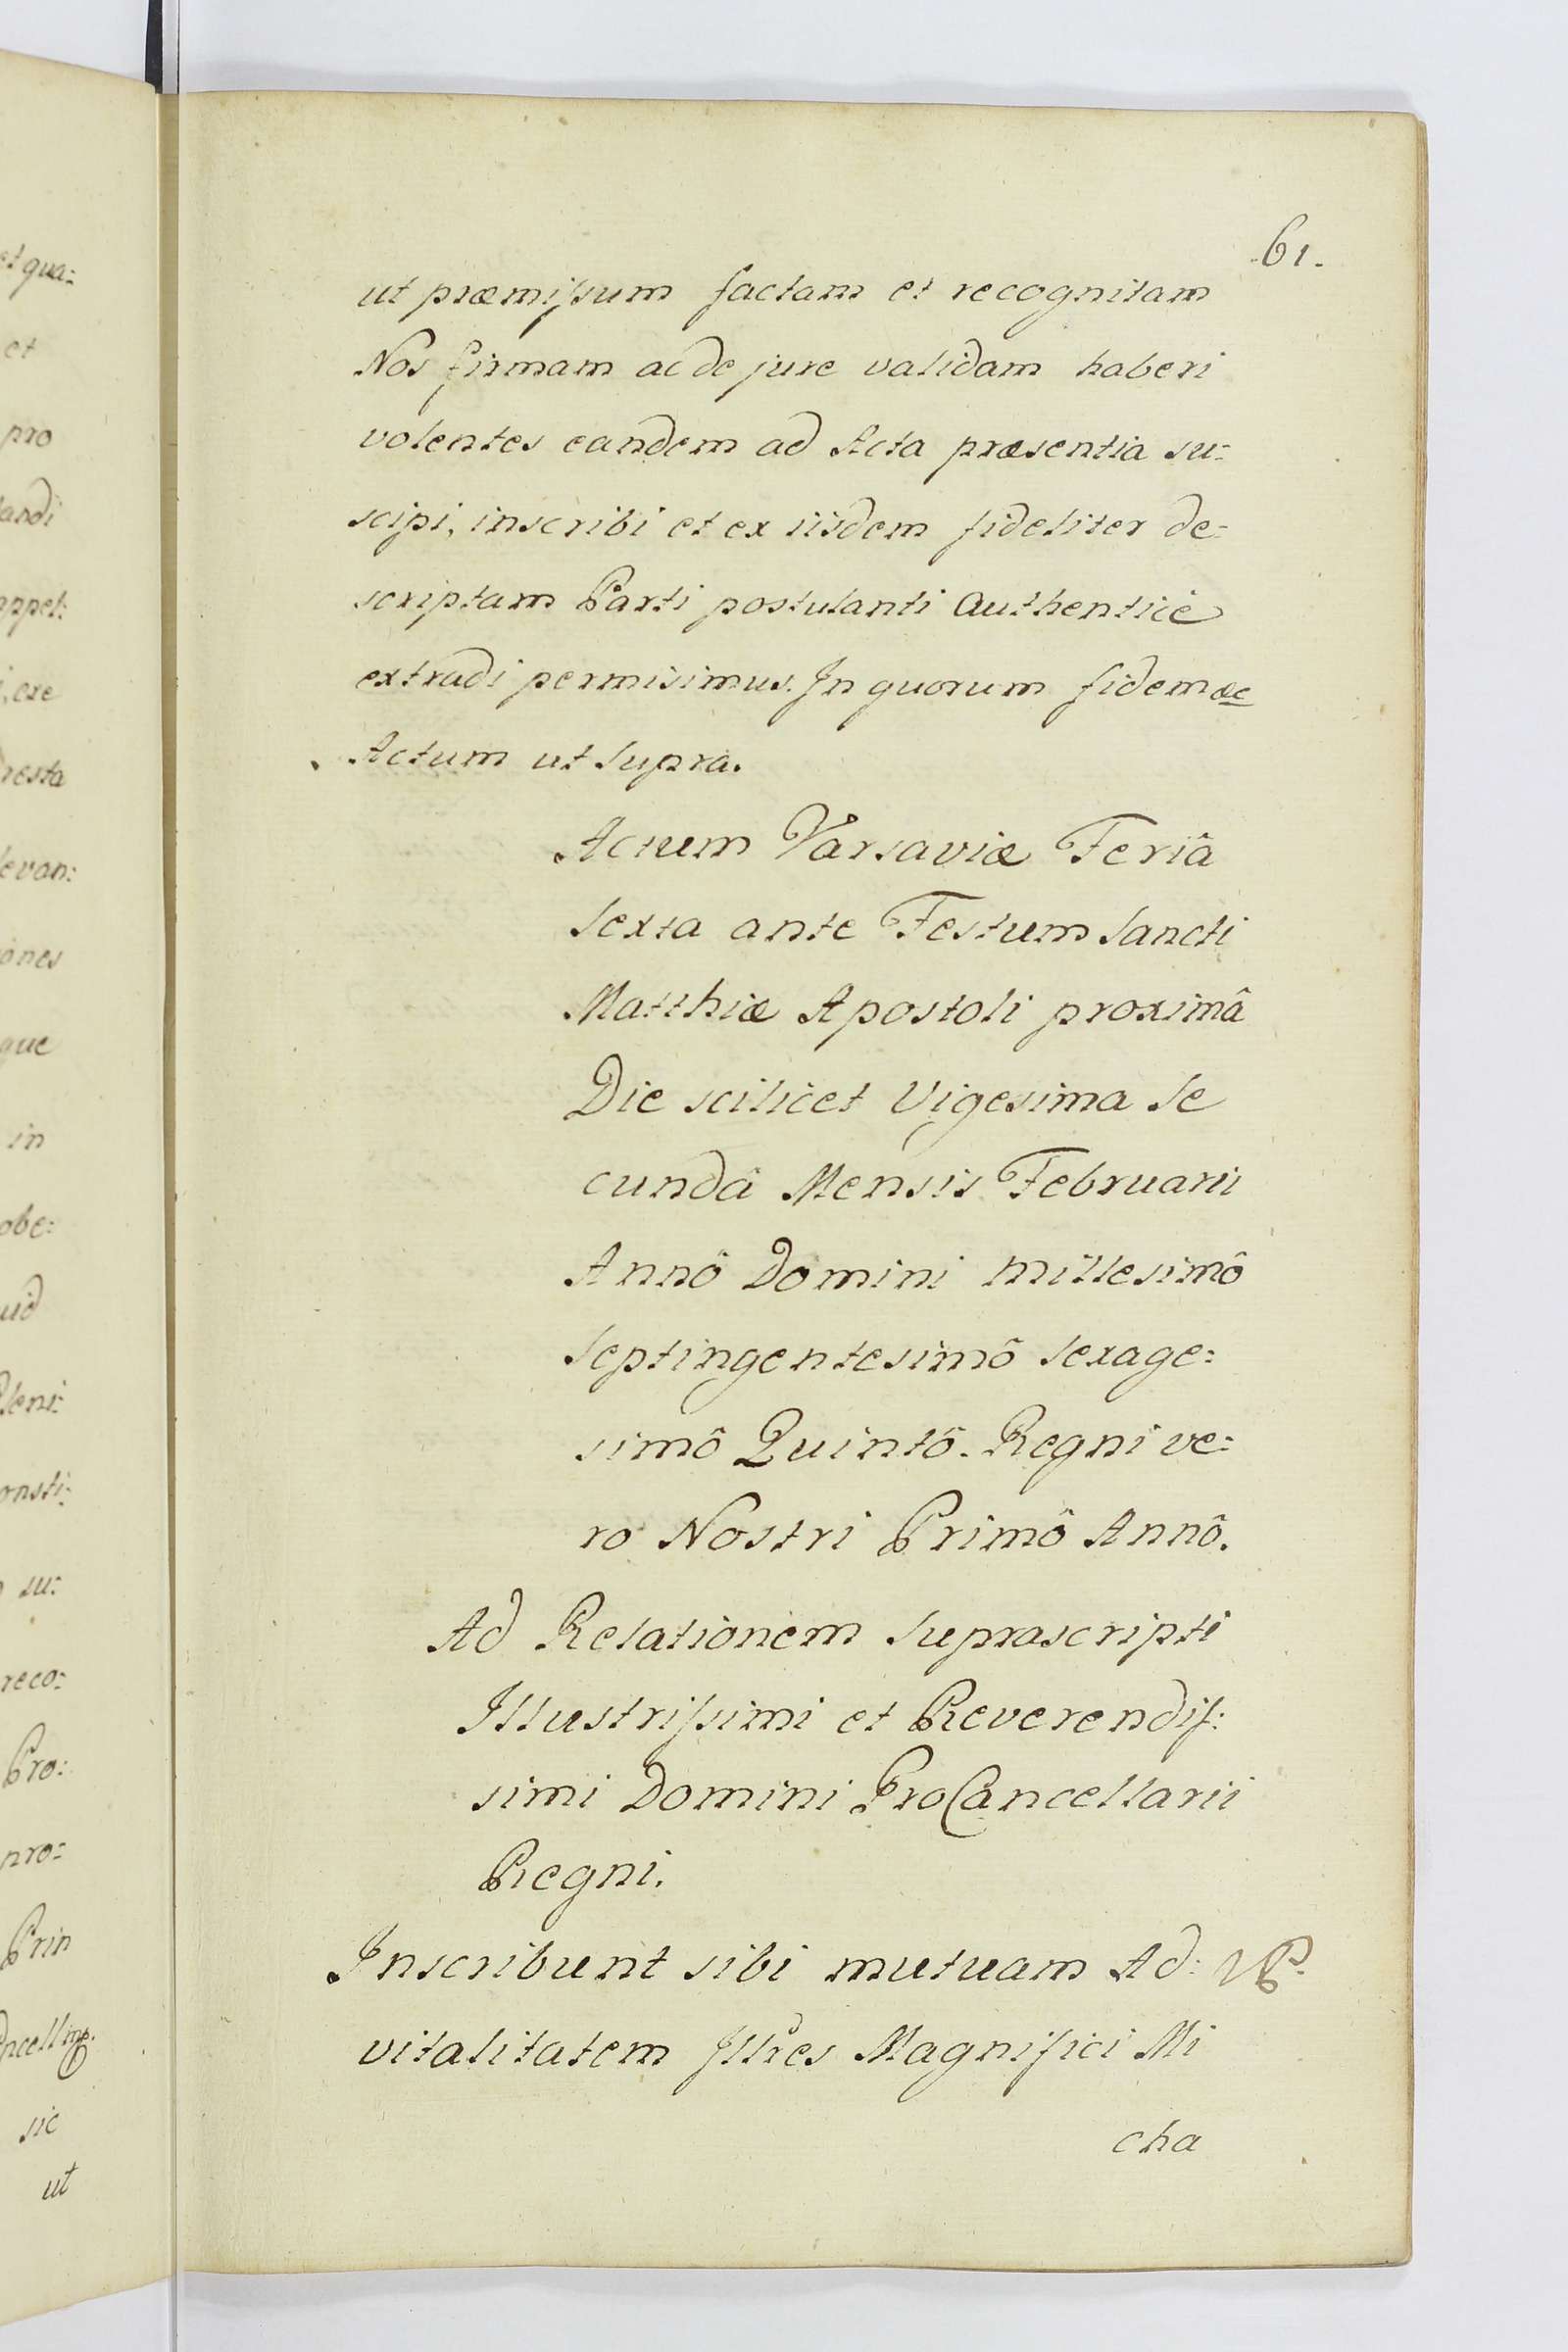 61.
ut præmissum factam et recognitam
Nos firmam ac de jure validam haberi
volentes eandem ad Acta præsentia su:
scipi, inscribi et ex iisdem fideliter de:
scriptam Parti postulanti Authenticè
extradi permisimus. In quorum fidem &c
Actum ut Supra.
Actum Varsaviæ Feriâ
Sexta ante Festum Sancti
Matthiæ Apostoli proximâ
Die scilicet Vigesima Se
cundâ Mensis Februarii
Annô Domini Millesimô
Septingentesimô Sexage:
simô Quintô. Regni ve:
ro Nostri Primô Annô.
Ad Relationem Suprascripti
Illustrissimi et Reverendis:
simi Domini ProCancellarii
Regni.
Inscribunt sibi mutuam Ad:
vitalitatem Illres Magnifici Mi
cha
et qua:
et
pro
landi
appel:
exe
resta
levan:
ones
que
in
obe:
uid
leni:
onsti:
su:
reco:
Pro:
pro:
Prin
sic
ut